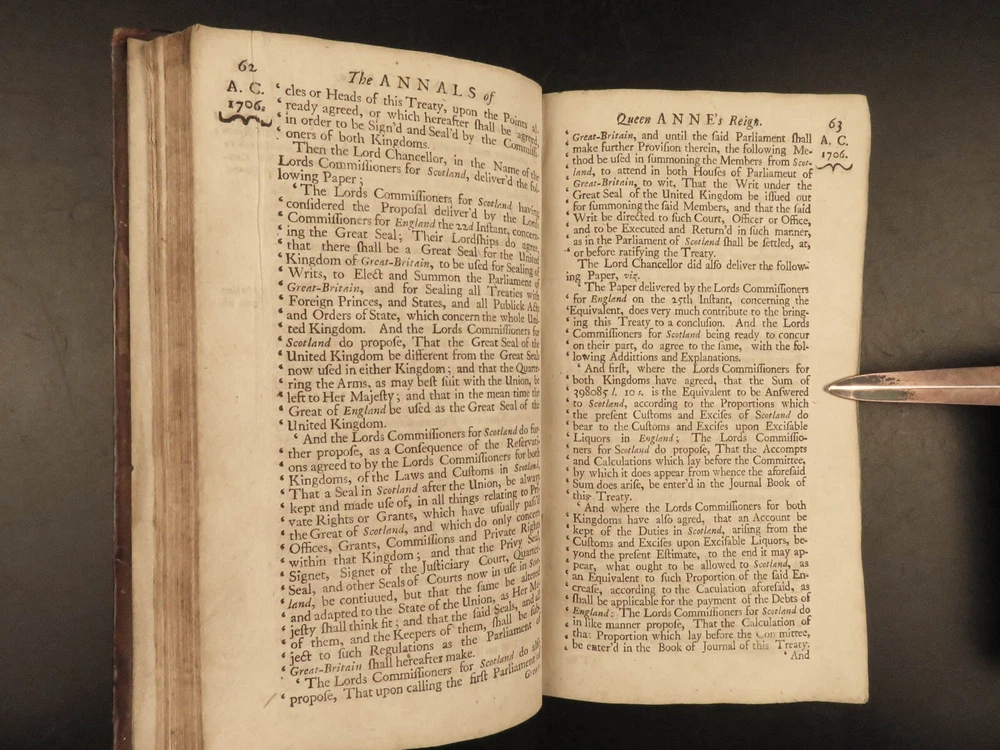 62
The ANNALS of
A. C.
1706.
‘ cles or Heads of this Treaty, upon the Points al-
‘ ready agreed, or which hereafter ſhall be agreed,
‘ in order to be Sign'd and Seal'd by the Commiſſi-
‘ oners of both Kingdoms.
Then the Lord Chancellor, in the Name of the
Lords Commiſſioners for Scotland, deliver'd the fol-
lowing Paper;
‘ The Lords Commiſſioners for Scotland having
‘ conſidered the Propoſal deliver'd by the Lords
‘ Commiſſioners for England the 22d Inſtant, concern-
‘ ing the Great Seal; Their Lordſhips do agree,
‘ that there ſhall be a Great Seal for the United
‘ Kingdom of Great-Britain, to be uſed for Sealing of
‘ Writs, to Elect and Summon the Parliament of
‘ Great-Britain, and for Sealing all Treaties with
‘ Foreign Princes, and States, and all Publick Acts
‘ and Orders of State, which concern the whole Uni-
‘ ted Kingdom. And the Lords Commiſſioners for
‘ Scotland do propoſe, That the Great Seal of the
‘ United Kingdom be different from the Great Seals
‘ now uſed in either Kingdom; and that the Quarte-
‘ ring the Arms, as may beſt ſuit with the Union, be
‘ left to Her Majeſty; and that in the mean time the
‘ Great of England be uſed as the Great Seal of the
‘ United Kingdom.
‘ And the Lords Commiſſioners for Scotland do fur-
‘ ther propoſe, as a Conſequence of the Reſervati-
‘ ons agreed to by the Lords Commiſſioners for both
‘ Kingdoms, of the Laws and Cuſtoms in Scotland,
‘ That a Seal in Scotland after the Union, be always
‘ kept and made uſe of, in all things relating to Pri-
‘ vate Rights or Grants, which have uſually paſs'd
‘ the Great of Scotland, and which do only concern
‘ Offices, Grants, Commiſſions and Private Rights
‘ within that Kingdom; and that the Privy Seal,
‘ Signet, Signet of the Juſticiary Court, Quarter-
‘ Seal, and other Seals of Courts now in uſe in Scot-
‘ land, be continued, but that the ſame be altered
‘ and adapted to the State of the Union, as Her Ma-
‘ jeſty ſhall think fit; and that the ſaid Seals, and all
‘ of them, and the Keepers of them, ſhall be ſub-
‘ ject to ſuch Regulations as the Parliament of
‘ Great-Britain ſhall hereafter make.
‘ The Lords Commiſſioners for Scotland do alſo
‘ propoſe, That upon calling the firſt Parliament of
Great-
Queen ANNE's Reign.
63
A. C.
1706.
‘ Great-Britain, and until the ſaid Parliament ſhall
‘ make further Proviſion therein, the following Me-
‘ thod be uſed in ſummoning the Members from Scot-
‘ land, to attend in both Houſes of Parliameut of
‘ Great-Britain, to wit, That the Writ under the
‘ Great Seal of the United Kingdom be iſſued out
‘ for ſummoning the ſaid Members, and that the ſaid
‘ Writ be directed to ſuch Court, Officer or Office,
‘ and to be Executed and Return'd in ſuch manner,
‘ as in the Parliament of Scotland ſhall be ſettled, at,
‘ or before ratifying the Treaty.
The Lord Chancellor did alſo deliver the follow-
ing Paper, viz.
‘ The Paper delivered by the Lords Commiſſioners
‘ for England on the 25th Inſtant, concerning the
‘ Equivalent, does very much contribute to the bring-
‘ ing this Treaty to a concluſion. And the Lords
‘ Commiſſioners for Scotland being ready to concur
‘ on their part, do agree to the ſame, with the fol-
‘ lowing Additions and Explanations.
‘ And firſt, where the Lords Commiſſioners for
‘ both Kingdoms have agreed, that the Sum of
‘ 398085 l. 10 s. is the Equivalent to be Anſwered
‘ to Scotland, according to the Proportions which
‘ the preſent Cuſtoms and Exciſes of Scotland do
‘ bear to the Cuſtoms and Exciſes upon Exciſable
‘ Liquors in England; The Lords Commiſſio-
‘ ners for Scotland do propoſe, That the Accompts
‘ and Calculations which lay before the Committee,
‘ by which it does appear from whence the aforeſaid
‘ Sum does ariſe, be enter'd in the Journal Book of
‘ this Treaty.
‘ And where the Lords Commiſſioners for both
‘ Kingdoms have alſo agred, that an Account be
‘ kept of the Duties in Scotland, ariſing from the
‘ Cuſtoms and Exciſes upon Exciſable Liquors, be-
‘ yond the preſent Eſtimate, to the end it may ap-
‘ pear, what ought to be allowed to Scotland, as
‘ an Equivalent to ſuch Proportion of the ſaid En-
‘ creaſe, according to the Caculation aforeſaid, as
‘ ſhall be applicable for the payment of the Debts of
‘ England: The Lords Commiſſioners for Scotland do
‘ in like manner propoſe, That the Calculation of
‘ that Proportion which lay before the Committee,
‘ be enter'd in the Book of Journal of this Treaty.
‘ And